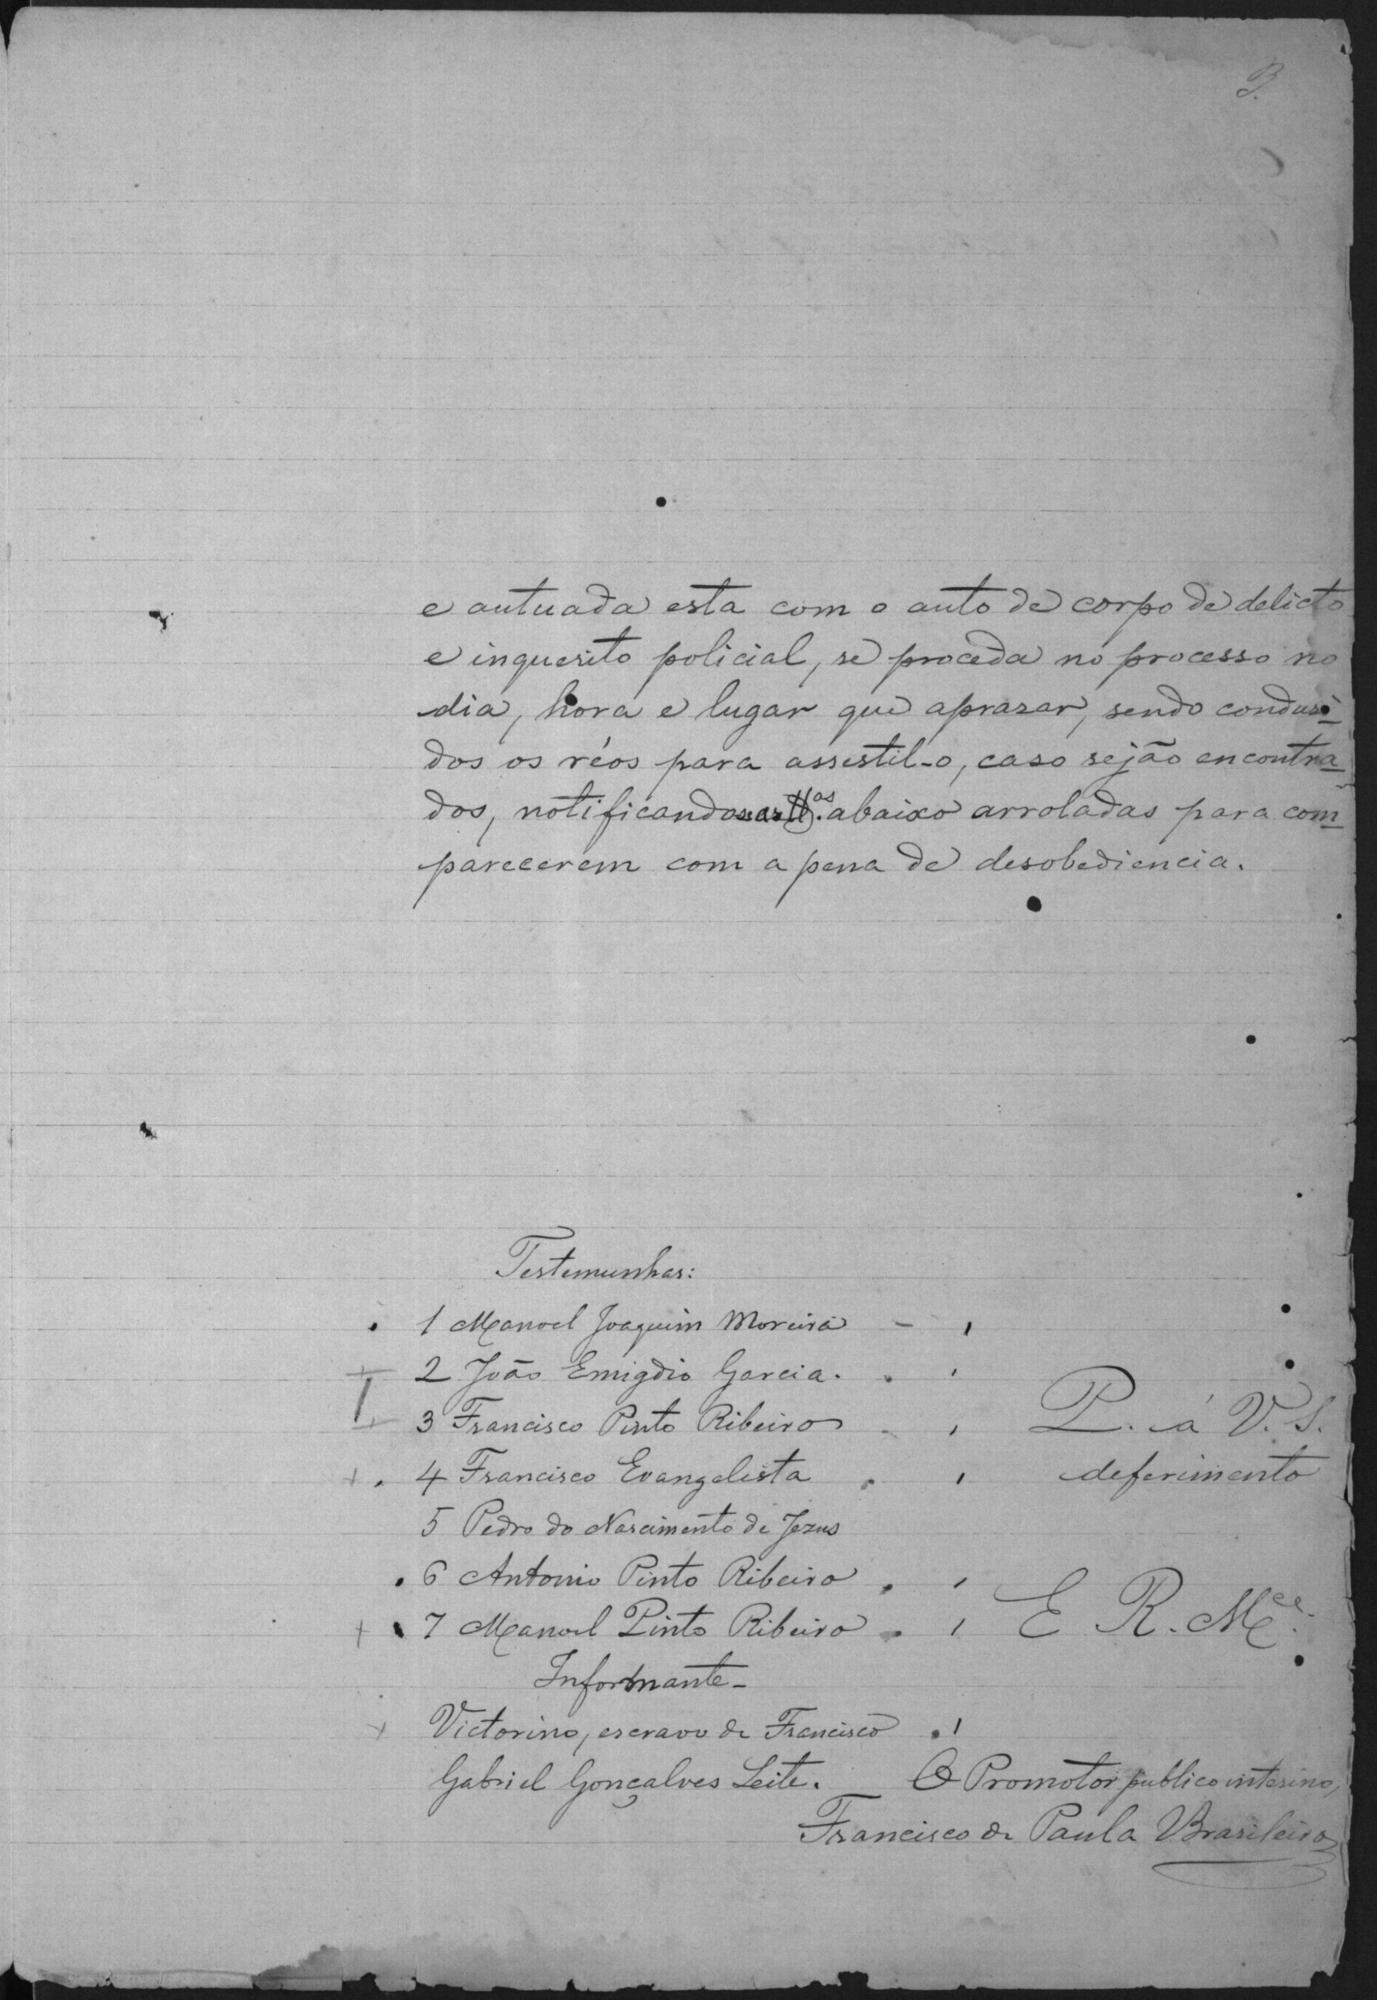 3.
e autuada esta com o auto de corpo de delicto
e inquerito policial, se proceda no processo no
dia, hora e lugar que aprazar, sendo condusi-
dos os réos para assestil-o, caso sejão encontra-
dos, notificando as tt.as abaixo arroladas para com-
parecerem com a pena de desobediencia.
Testemunhas:
1 Manoel Joaquim Moreira
2 João Emigdio Garcia.
3 Francisco Pinto Ribeiro
P. á V. S.
4 Francisco Evangelista
deferimento
5 Pedro do Nascimento de Jezus
6 Antonio Pinto Ribeiro
7 Manoel Pinto Ribeiro
E R. M.ce
Informante-
Victorino, escravo de Francisco
Gabriel Gonçalves Leite.
O Promotor publico interino,
Francisco de Paula Brasileiro